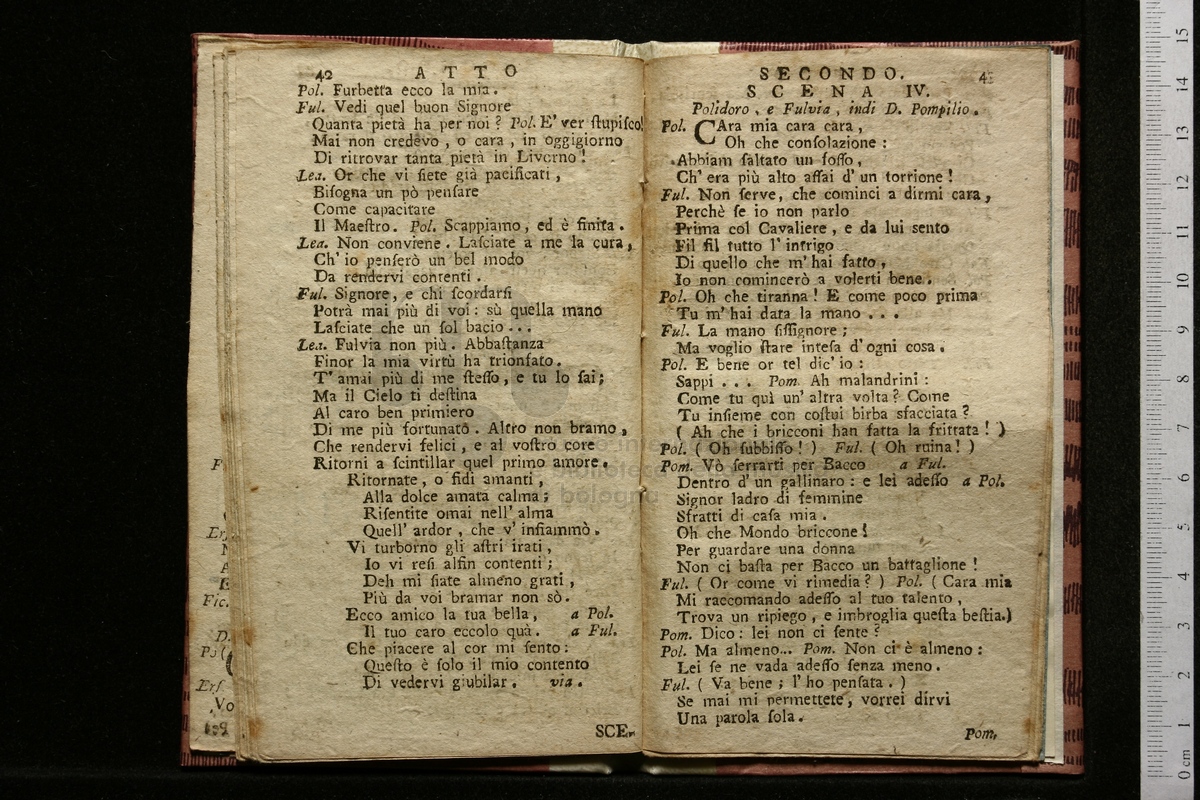 42 ATTO
Pol. Furbetta ecco la mia.
Ful. Vedi quel buon Signore
Quanta pietà ha per noi? Pol. E' ver ſtupiſco!
Mai non credevo, o cara, in oggigiorno
Di ritrovar tanta pietà in Livorno!
Lea. Or che vi ſiete già pacificati,
Biſogna un pò penſare
Come capacitare
Il Maeſtro. Pol. Scappiamo, ed è finita.
Lea. Non conviene. Laſciate a me la cura,
Ch' io penſerò un bel modo
Da rendervi contenti.
Ful. Signore, e chi ſcordarſi
Potrà mai più di voi: sù quella mano
Laſciate che un ſol bacio...
Lea. Fulvia non più. Abbaſtanza
Finor la mia virtù ha trionfato.
T' amai più di me ſteſſo, e tu lo ſai;
Ma il Cielo ti deſtina
Al caro ben primiero
Di me più fortunato. Altro non bramo,
Che rendervi felici, e al voſtro core
Ritorni a ſcintillar quel primo amore.
Ritornate, o fidi amanti,
Alla dolce amata calma;
Riſentite omai nell' alma
Quell' ardor, che v' infiammò.
Vi turborno gli aſtri irati,
Io vi reſi alfin contenti;
Deh mi ſiate almeno grati,
Più da voi bramar non sò.
Ecco amico la tua bella, a Pol.
Il tuo caro eccolo quà. a Ful.
Che piacere al cor mi ſento:
Queſto è ſolo il mio contento
Di vedervi giubilar. via.
SCE-
SECONDO. 43
SCENA IV.
Polidoro, e Fulvia, indi D. Pompilio.
Pol. CAra mia cara cara,
Oh che conſolazione:
Abbiam ſaltato un foſſo,
Ch' era più alto aſſai d' un torrione!
Ful. Non ſerve, che cominci a dirmi cara,
Perchè ſe io non parlo
Prima col Cavaliere, e da lui ſento
Fil fil tutto l' intrigo
Di quello che m' hai fatto,
Io non comincerò a volerti bene.
Pol. Oh che tiranna! E come poco prima
Tu m' hai data la mano...
Ful. La mano ſiſſignore;
Ma voglio ſtare inteſa d' ogni coſa.
Pol. E bene or tel dic' io:
Sappi... Pom. Ah malandrini:
Come tu quì un' altra volta? Come
Tu inſieme con coſtui birba sfacciata?
( Ah che i bricconi han fatta la frittata! )
Pol. ( Oh ſubbiſſo! ) Ful. ( Oh ruina! )
Pom. Vò ſerrarti per Bacco a Ful.
Dentro d' un gallinaro: e lei adeſſo a Pol.
Signor ladro di femmine
Sfratti di caſa mia.
Oh che Mondo briccone!
Per guardare una donna
Non ci baſta per Bacco un battaglione!
Ful. ( Or come vi rimedia? ) Pol. ( Cara mia
Mi raccomando adeſſo al tuo talento,
Trova un ripiego, e imbroglia queſta beſtia.)
Pom. Dico: lei non ci ſente?
Pol. Ma almeno... Pom. Non ci è almeno:
Lei ſe ne vada adeſſo ſenza meno.
Ful. ( Va bene; l' ho penſata. )
Se mai mi permettete, vorrei dirvi
Una parola ſola.
Pom.